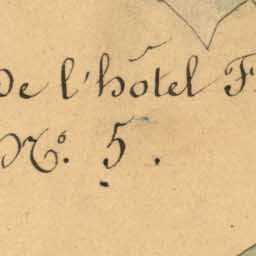 De l'hôtel F
No. 5.